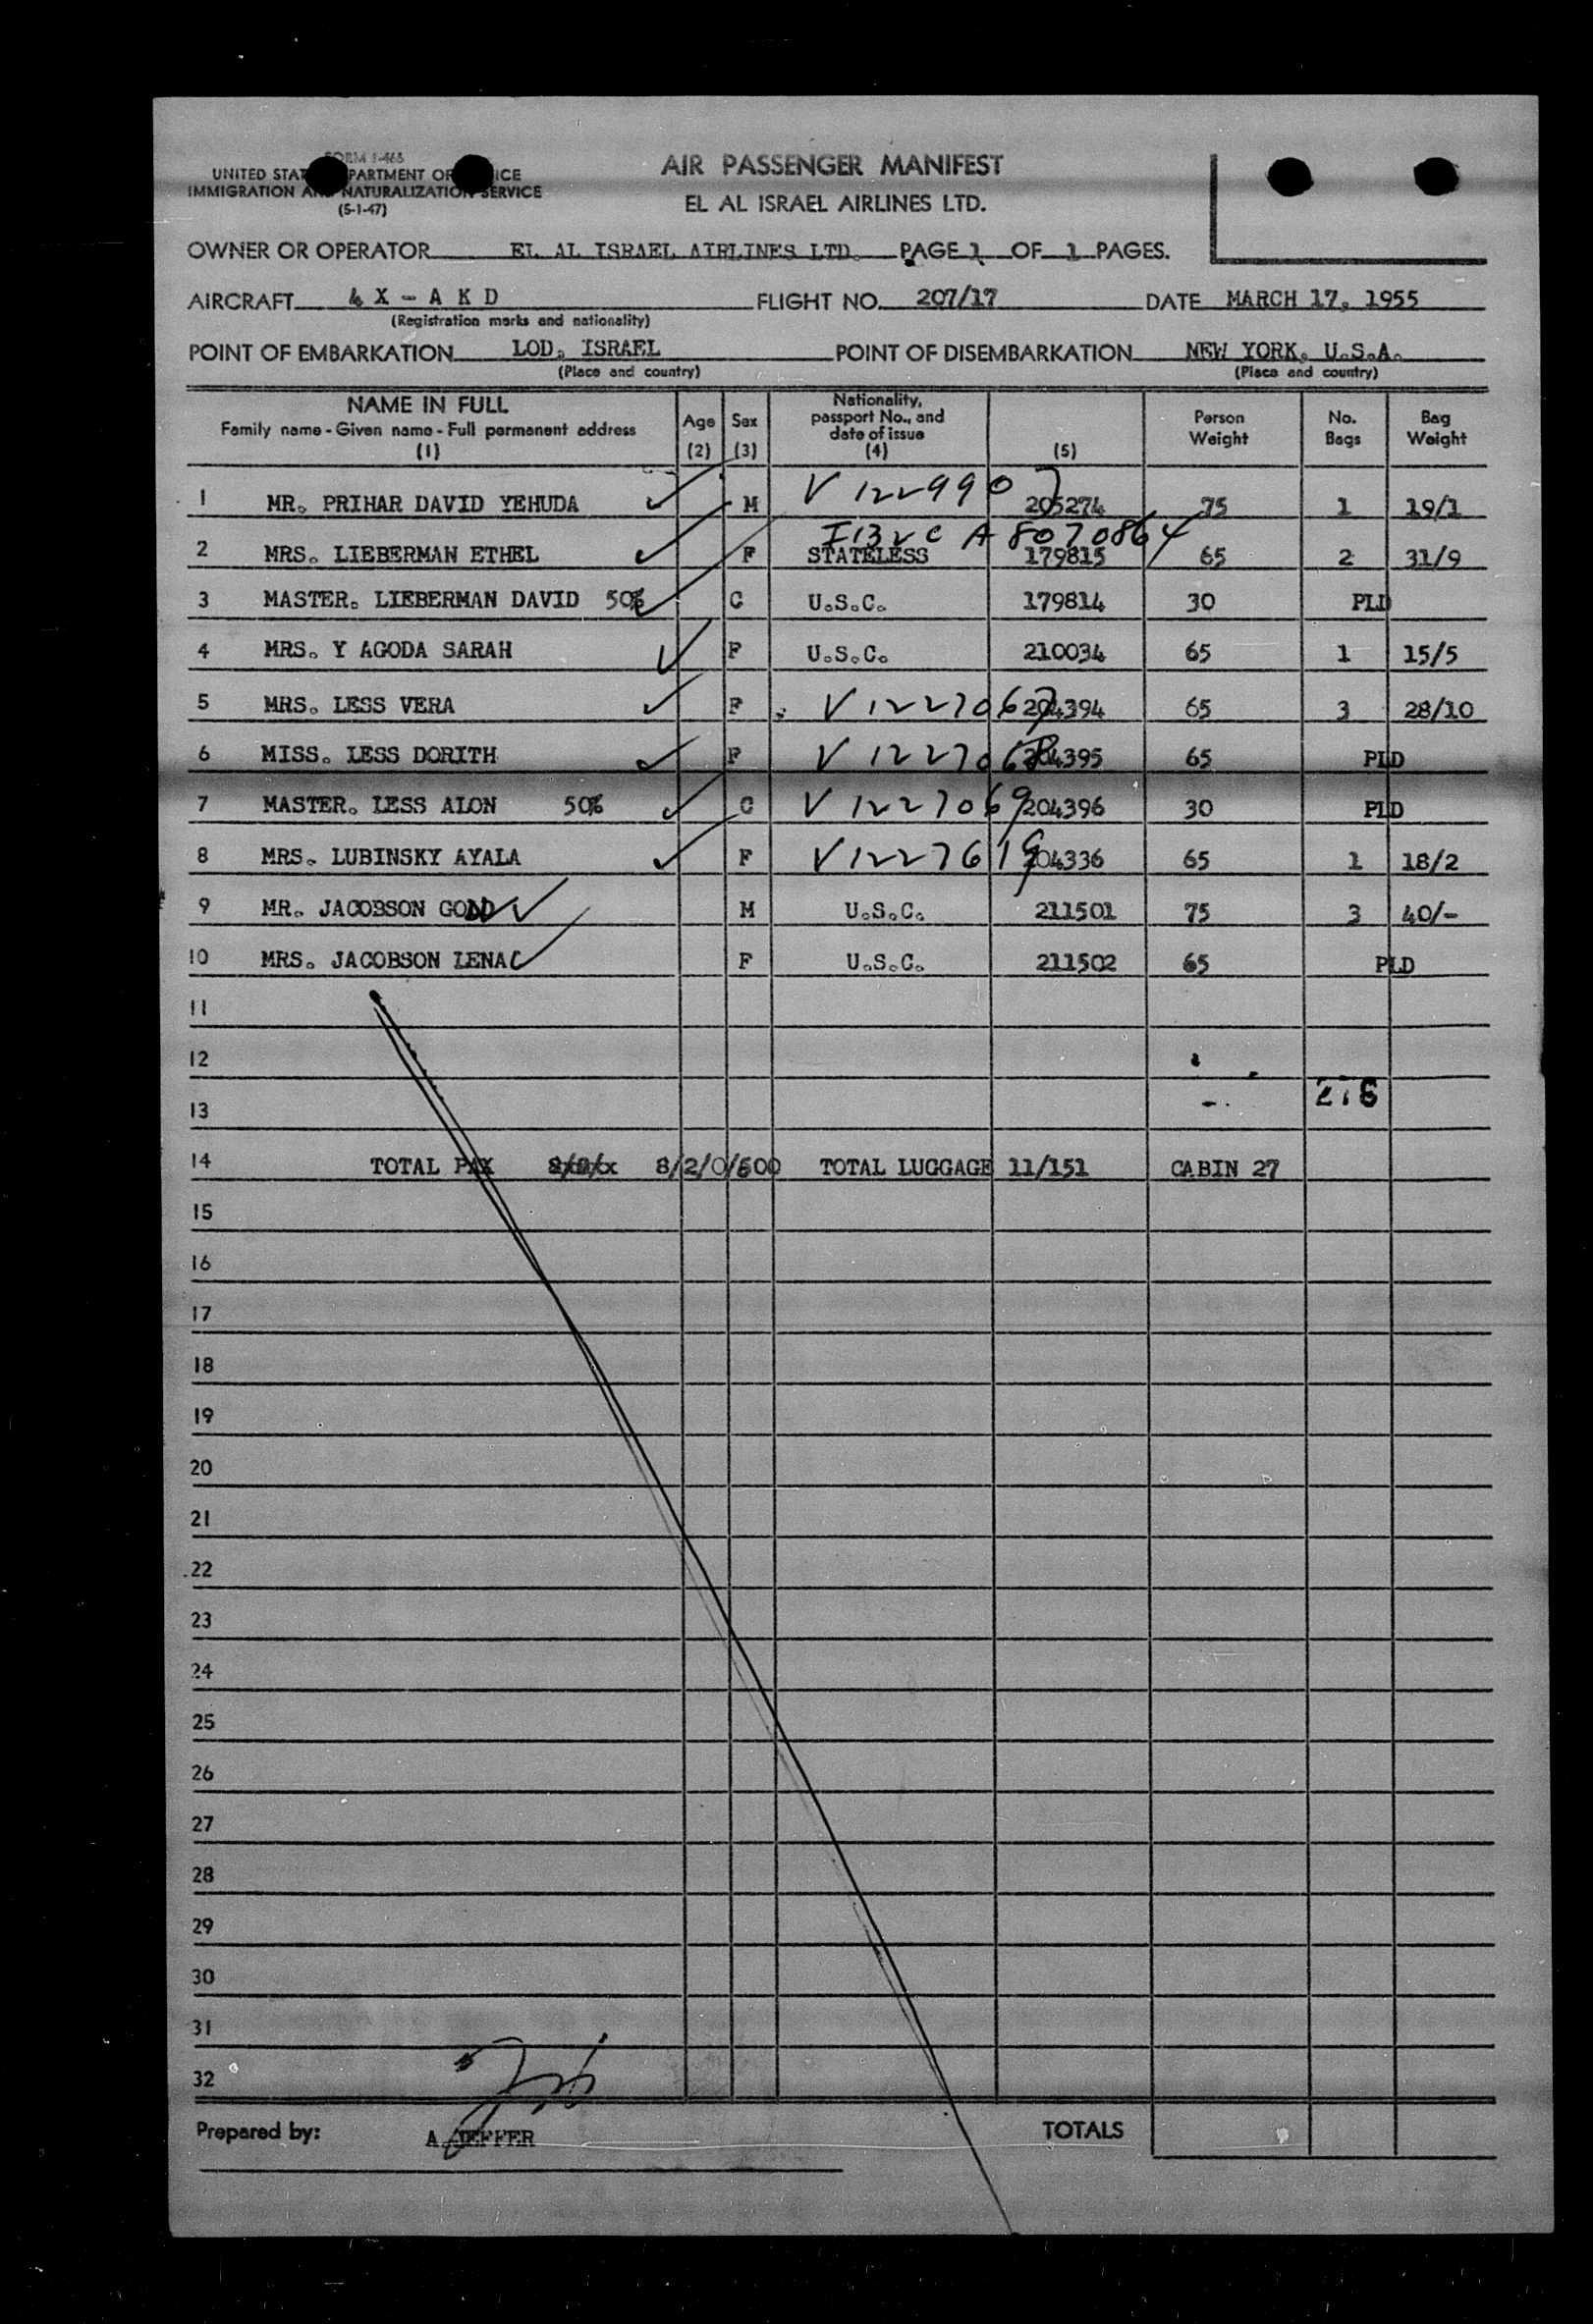 FORM I-466
UNITED STAT PARTMENT OF ICE
IMMIGRATION AND NATURALIZATION SERVICE
(5-1-47)
AIR PASSENGER MANIFEST
EL AL ISRAEL AIRLINES LTD.
OWNER OR OPERATOR EL AL ISRAEL AIRLINES LTD. PAGE 1 OF 1 PAGES.
AIRCRAFT 4 X - A K D FLIGHT NO. 207/17 DATE MARCH 17, 1955
(Registration marks and nationality)
POINT OF EMBARKATION LOD. ISRAEL POINT OF DISEMBARKATION NEW YORK. U.S.A.
(Place and country) (Place and country)
NAME IN FULL
Family name - Given name - Full permanent address
(1)
Age
(2)
Sex
(3)
Nationality,
passport No., and
date of issue
(4)
(5)
Person
Weight
No.
Bags
Bag
Weight
1 MR. PRIHAR DAVID YEHUDA M V 1229907 205274 75 1 19/1
I 13 v c A 8070864
2 MRS. LIEBERMAN ETHEL F STATELESS 179815 65 2 31/9
3 MASTER. LIEBERMAN DAVID 50% C U.S.C. 179814 30 PLD
4 MRS. Y AGODA SARAH F U.S.C. 210034 65 1 15/5
5 MRS. LESS VERA F V 1227067 204394 65 3 28/10
6 MISS. LESS DORITH F V 1227068 204395 65 PLD
7 MASTER. LESS ALON 50% C V 1227069 204396 30 PLD
8 MRS. LUBINSKY AYALA F V 1227619 204336 65 1 18/2
9 MR. JACOBSON GODD M U.S.C. 211501 75 3 40/-
10 MRS. JACOBSON LENA F U.S.C. 211502 65 PLD
11
12
13 276
14 TOTAL PAX 8/2/0/600 TOTAL LUGGAGE 11/151 CABIN 27
15
16
17
18
19
20
21
22
23
24
25
26
27
28
29
30
31
32
Prepared by: A. TOTALS